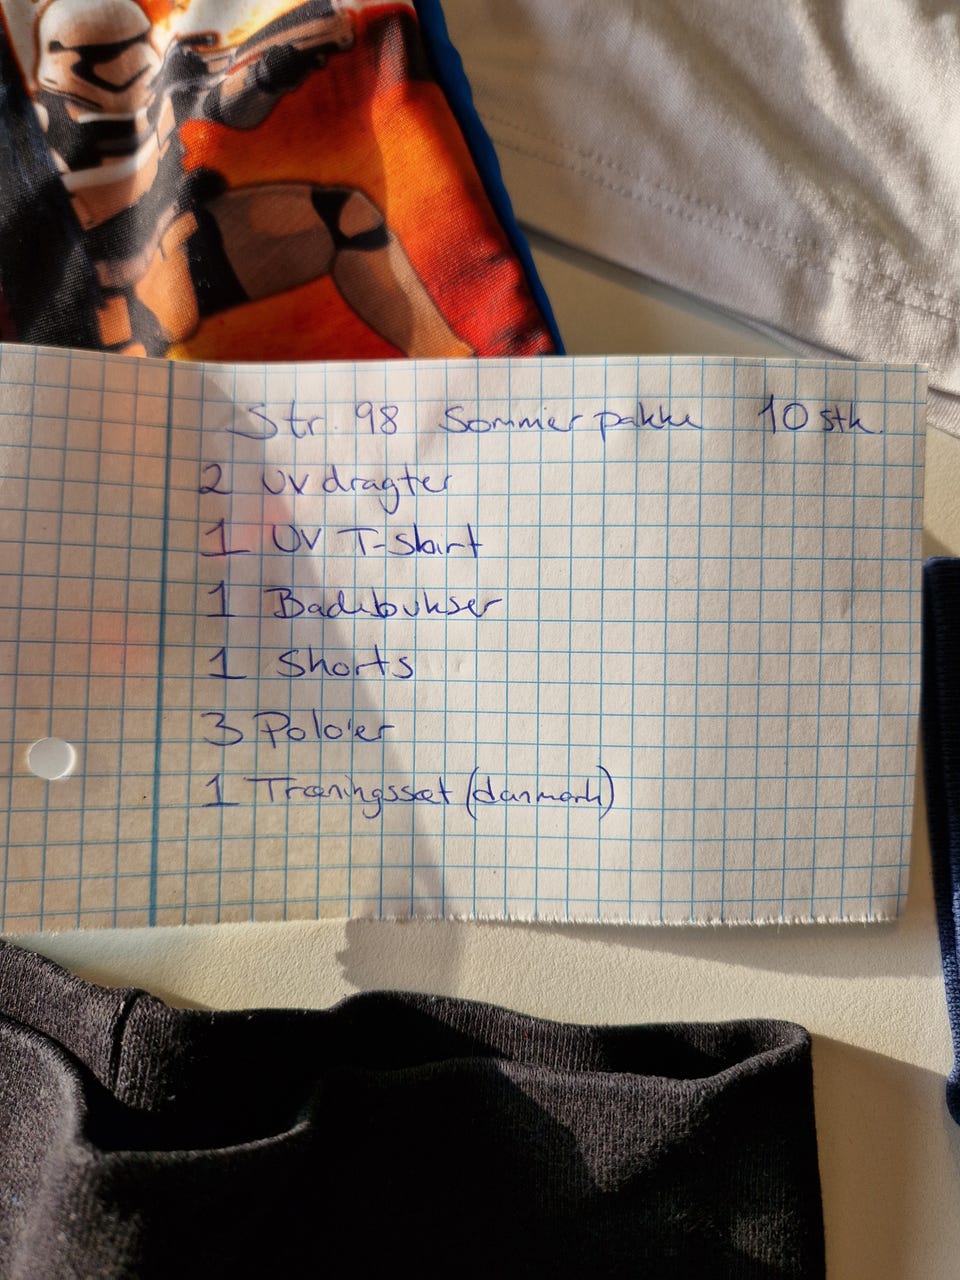 Str. 98 Sommerpakke 10 stk.
2 UV dragter
1 UV T-Shirt
1 Badebukser
1 Shorts
3 Polo'er
1 Træningssæt (danmark)